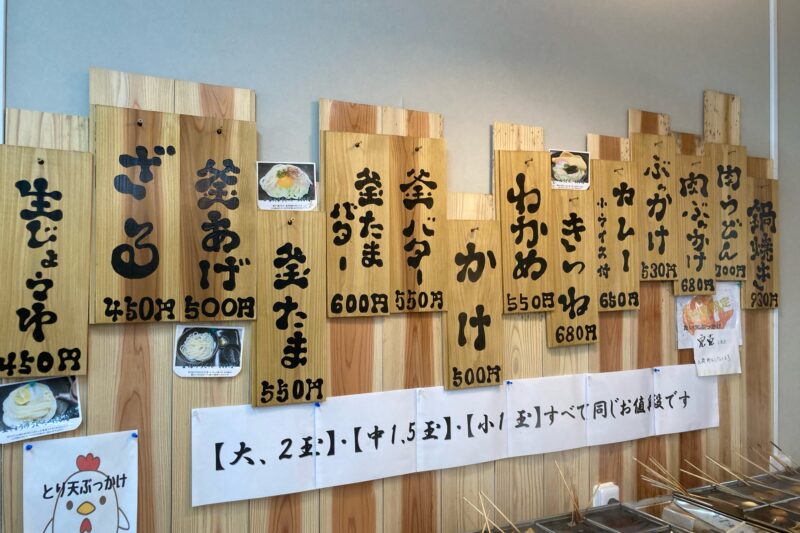 生じょうゆ
450円
ざる
450円
釜あげ
500円
釜たま
550円
釜たま
バター
600円
釜バター
550円
かけ
500円
わかめ
550円
きつね
680円
カレー
小ライス付
650円
ぶっかけ
530円
肉ぶっかけ
680円
肉うどん
700円
鍋焼き
930円
【大、2玉】・【中1,5玉】・【小1玉】すべて同じお値段です
とり天ぶっかけ